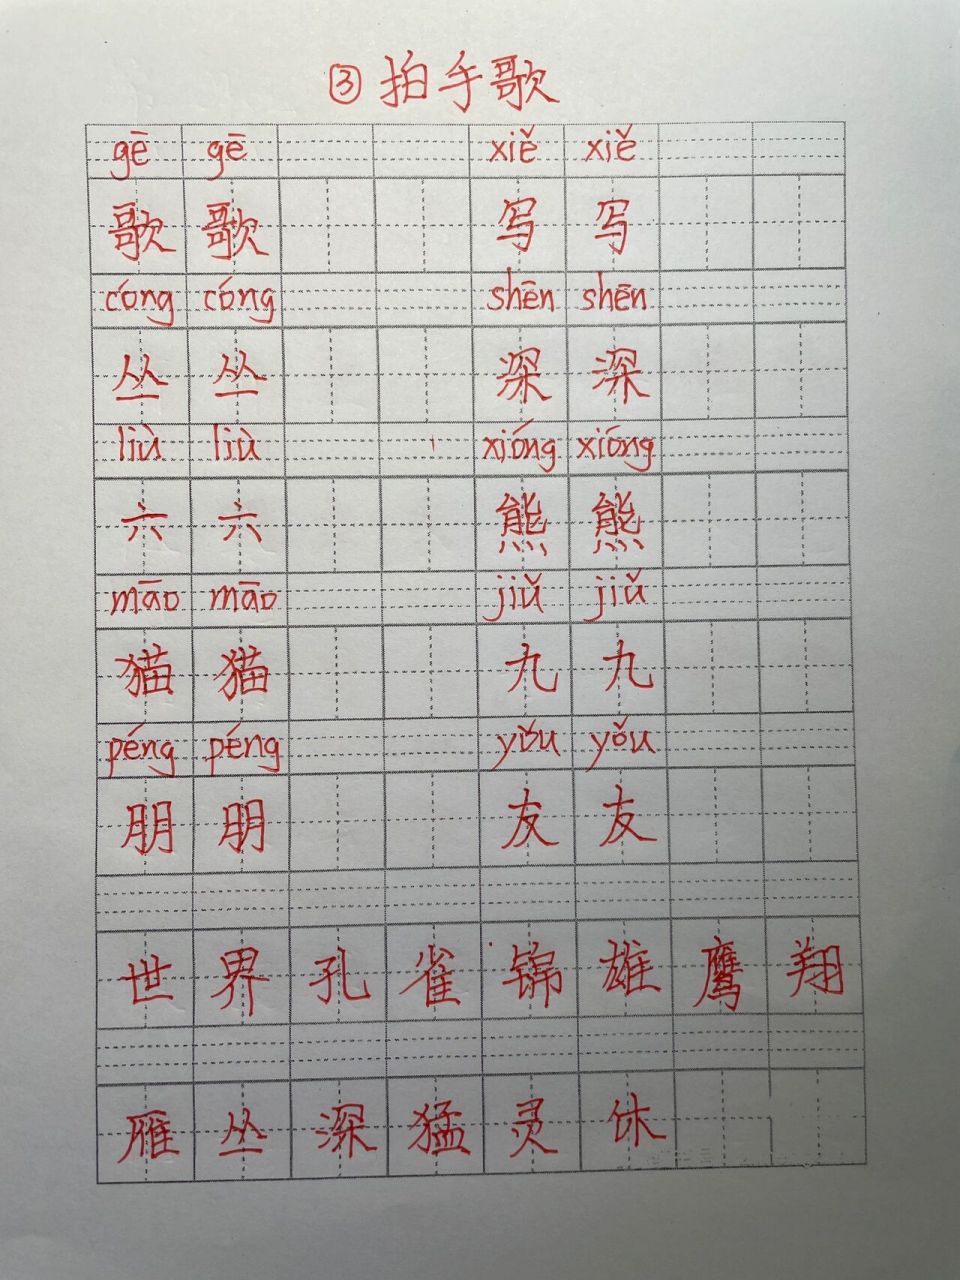 ③拍手歌
gē gē xiě xiě
歌 歌 写 写
cóng cóng shēn shēn
丛 丛 深 深
liù liù xióng xióng
六 六 熊 熊
māo māo jiǔ jiǔ
猫 猫 九 九
péng péng yǒu yǒu
朋 朋 友 友
世 界 孔 雀 锦 雄 鹰 翔
雁 丛 深 猛 灵 休